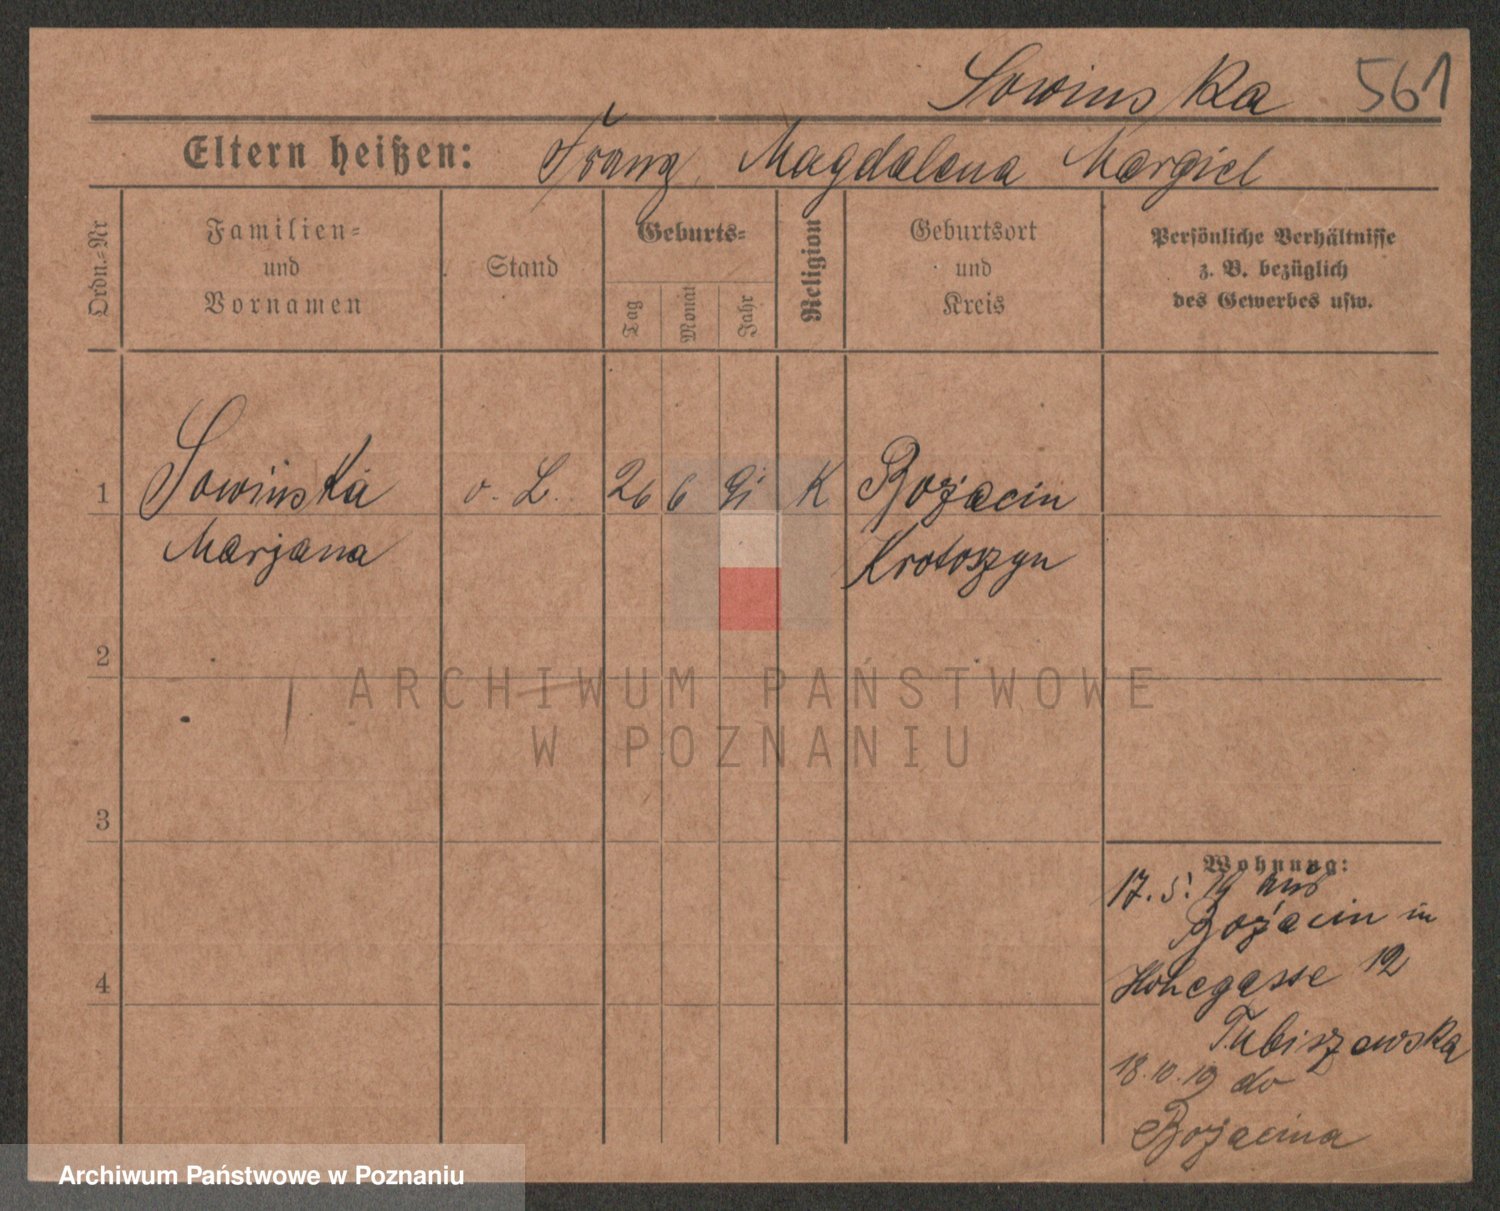 Sowinska 561
Eltern heißen: Franz, Magdalena Margiel
Ordn.-Nr
Familien-
und
Vornamen
Stand
Geburts-
Tag
Monat
Jahr
Religion
Geburtsort
und
Kreis
Persönliche Verhältnisse
z. B. bezüglich
des Gewerbes usw.
1 Sowińska o. L. 26 6 K Bożacin
Marjana Krotoszyn
2
3
4
Wohnung:
17. 5. 19 aus
Bożacin in
Hohegasse 12
Tubiszewska
18.10.19 do
Bożacina
ARCHIWUM PAŃSTWOWE
W POZNANIU
Archiwum Państwowe w Poznaniu